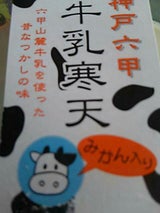 神戸六甲
牛乳寒天
六甲山麓牛乳を使った
昔なつかしの味
みかん入り